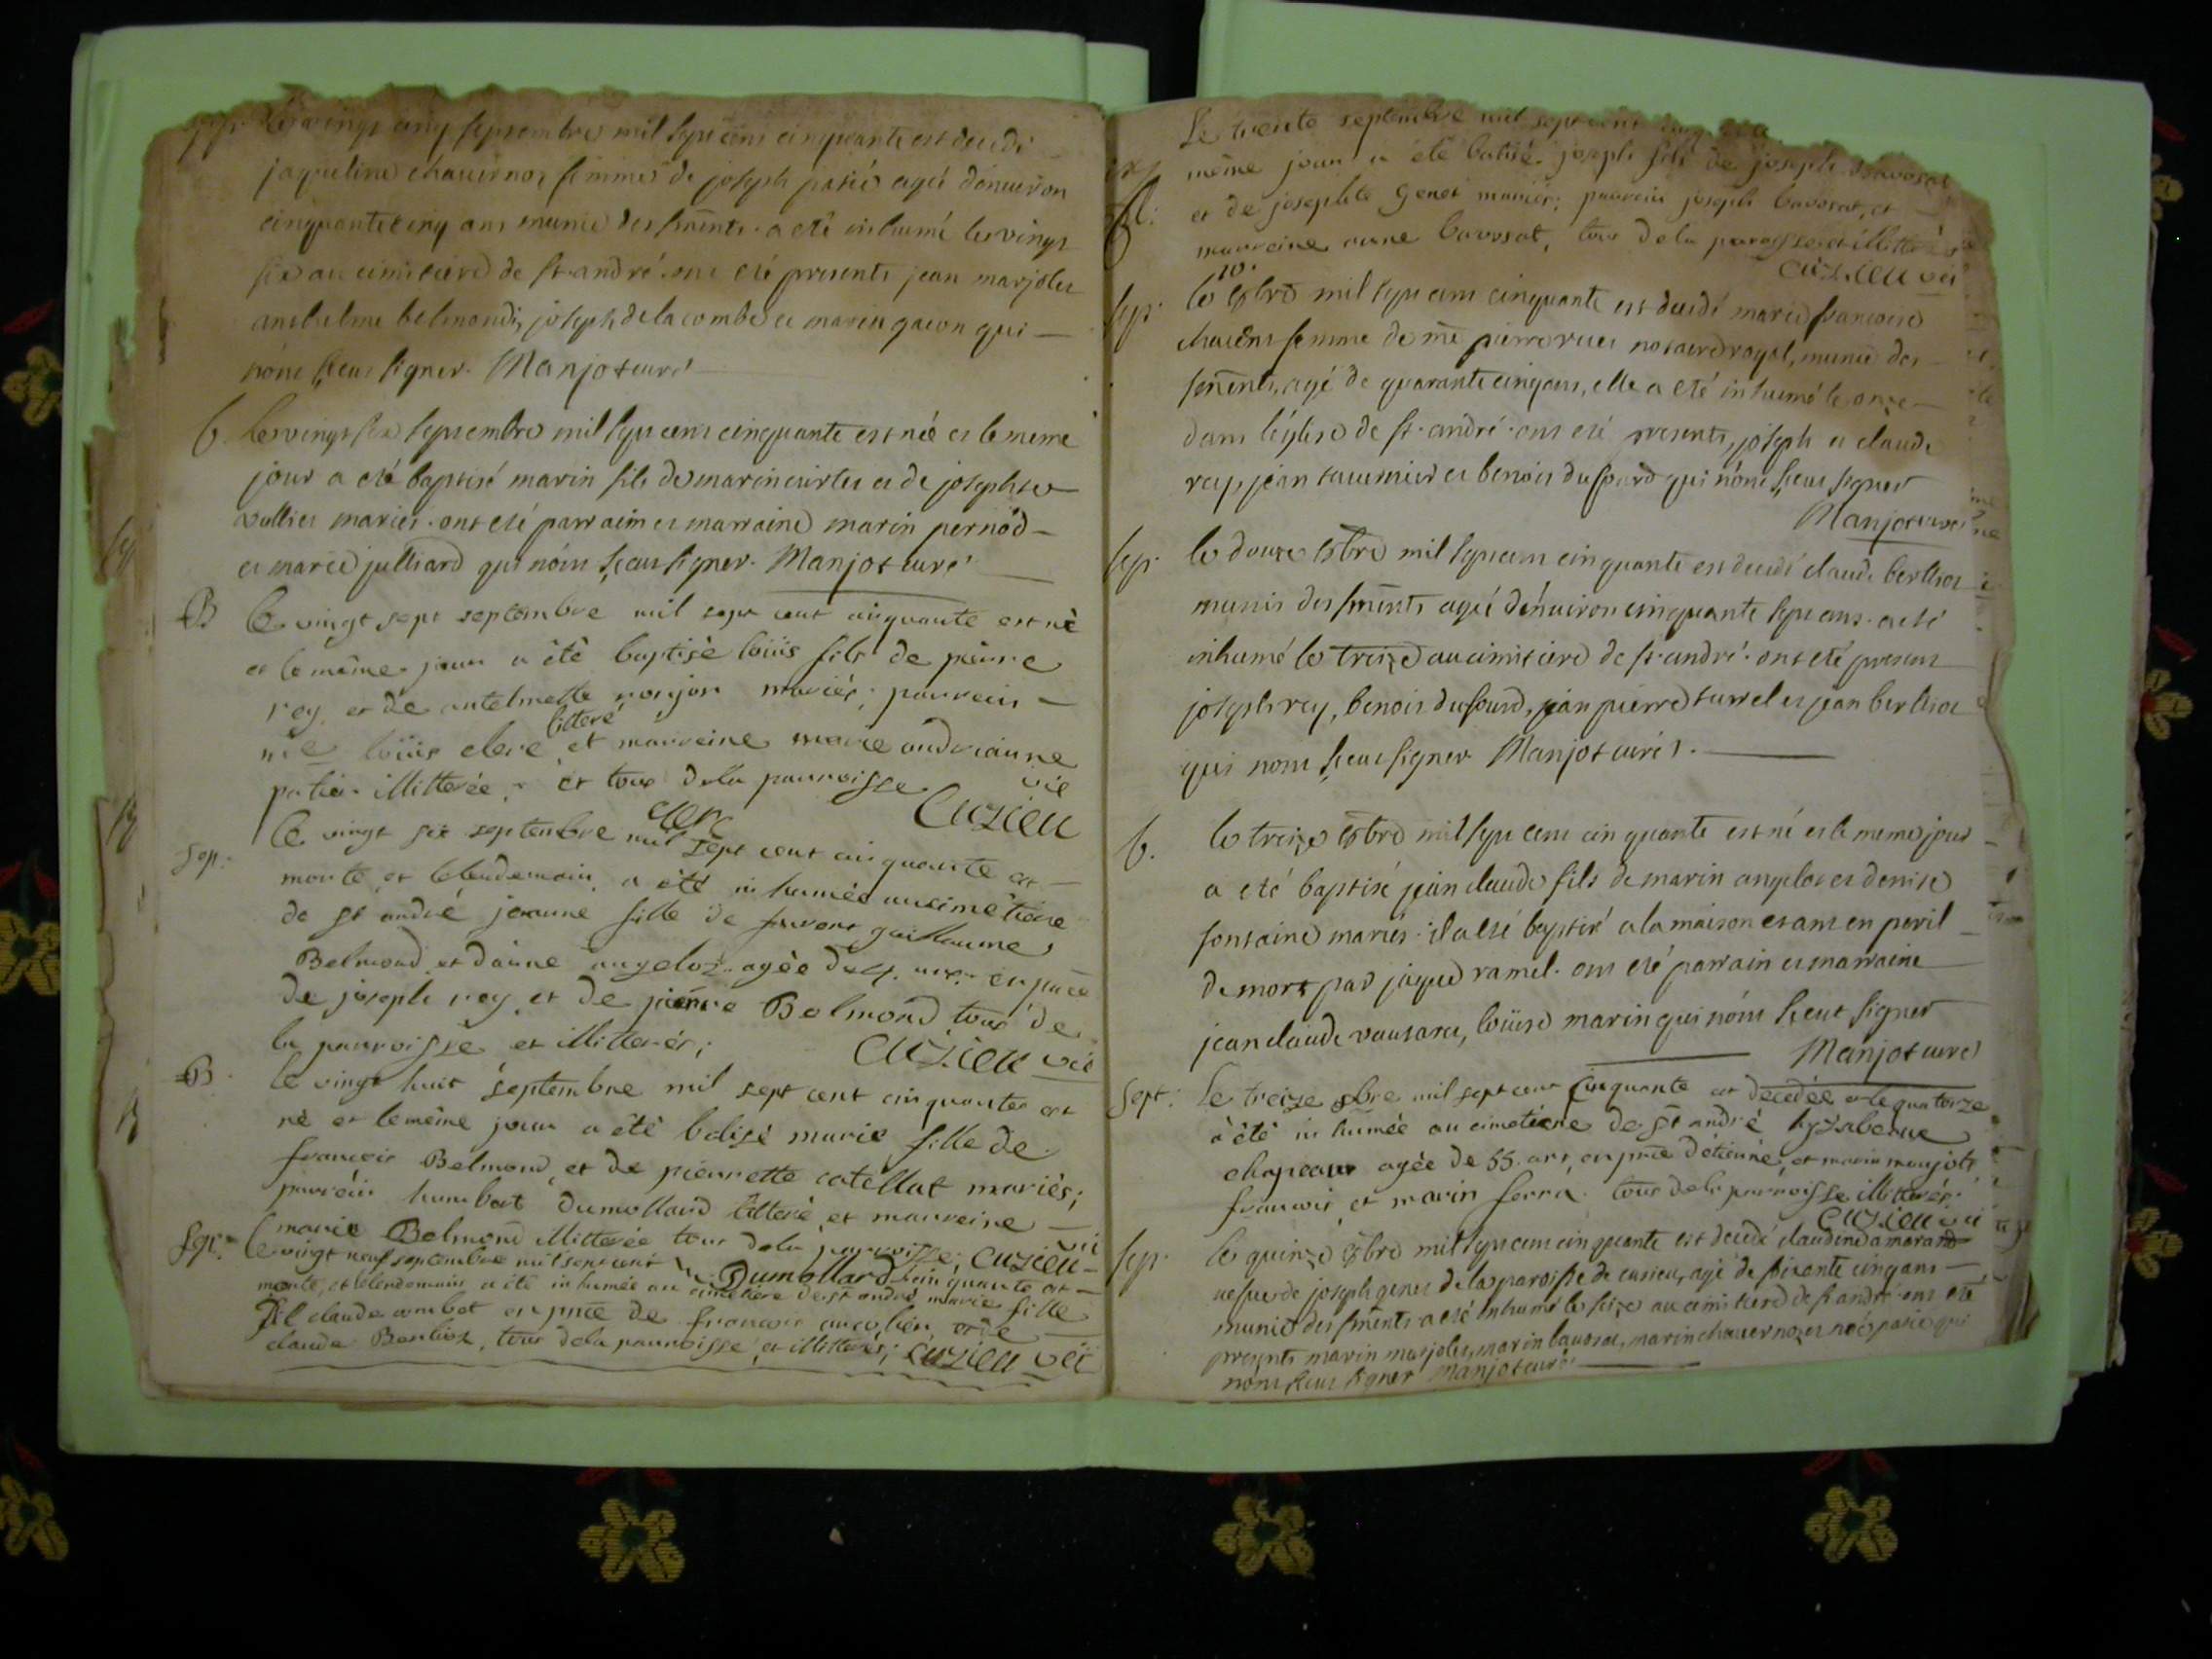 sep. Le vingt cinq septembre mil sept cens cinquante est decedé
jaqueline chavernoz femme de joseph patié agée denviron
cinquante cinq ans munie des sréments. a eté inhumé le vingt
six au cimitiere de st. andré. ont eté presents jean marjolet
anthelme belmond, joseph delacombe et marin gacon qui
nont sceu signer. Manjot curé
b. Le vingt six septembre mil sept cens cinquante est née et le meme
jour a eté baptisé marin fils de marin et de josephte
vullier mariés. ont eté parrain et marraine marin pernod
et marie julliard qui nont sceu signer. Manjot curé
B Le vingt sept septembre mil sept cent cinquante est nè
et le même jour a été baptisè loüis fils de pierre
rey et de antelmette monjon mariés; parrein
me loüis clerc litteré et marreine marie andrianne
patié illitterée, et tous de la parroisse
clerc Cuzieu vic
Sep. Le vingt six septembre mil sept cent cinquante est
morte et le lendemain a été inhumée au cimetiere
de st andré jeanne fille de guillaume
Belmond et danne angeloz agée de 4. ans en pñce
de joseph rey et de pierre Belmond tous de
la parroisse et illitterés; Cuzieu vic
B. Le vingt huit septembre mil sept cent cinquante est
nè et le même jour a été batisé marie fille de
francois Belmond et de pierrette catellat mariès;
parrein humbert Dumollard litteré et marreine
marie Belmond illitterée tous de la parroisse; Cuzieu vic
Sep. Le vingt neuf septembre mil sept cent cinquante est Dumollard
morte, et le lendemain a été inhumée au cimetiere de st andré marie fille
de claude combet en pñce de francois et de
claude Berlioz, tous de la parroisse et illitterés; Cuzieu vic
Le trente septembre mil sept cent
même jour a été batisé joseph fils de joseph bavosat
et de josephte Genet mariés; parrein joseph bavosat, et
marreine anne bavosat, tous de la paroisse et illitterés
Cuzieu vic
sep. le 10. 8bre mil sept cens cinquante est decedé marie francoise
femme de me pierre ruet notaire royal, munie des
sréments, agé de quarante cinq ans, elle a eté inhumé le onze
dans l'église de st. andré. ont eté presents, joseph et claude
rey, jean saumier et benoit dufourd qui nont sceu signer
Manjot curé
sep. le douze 8bre mil sept cens cinquante est decedé claude berlioz
munis des sréments agé denviron cinquante sept ans. a eté
inhumé le treize au cimitiere de st. andré. ont eté present
joseph rey, benoit dufourd, jean pierre surrel et jean berlioz
qui nont sceu signer Manjot curé.
b. le treize 8bre mil sept cens cinquante est né et le meme jour
a eté baptisé jean claude fils de marin angelot et denise
fontaine mariés. il a eté baptisé a la maison etant en peril
de mort par jaque ramel. ont eté parrain et marraine
jean claude vausare, loüise marin qui nont sceut signer
Manjot curé
Sept. Le treize 8bre mil sept cent cinquante est decedée et le quatorze
a été inhumée au cimetiere de st andré
chapeaux agée de 55. ans en pñce d'étienne, et marin manjot
francois et marin ferra. tous de la parroisse illitterés.
Cuzieu vic
sep. le quinze 8bre mil sept cens cinquante est decedé claudine amorand
vefve de joseph genet de la paroisse de cusieu, agé de soixante cinq ans
munie des sréments a eté inhumé le seize au cimitiere de st andré ont eté
presents marin marjolet, marin bavosat, marin chavernoz et noë patié qui
nont sceu signer Manjot curé